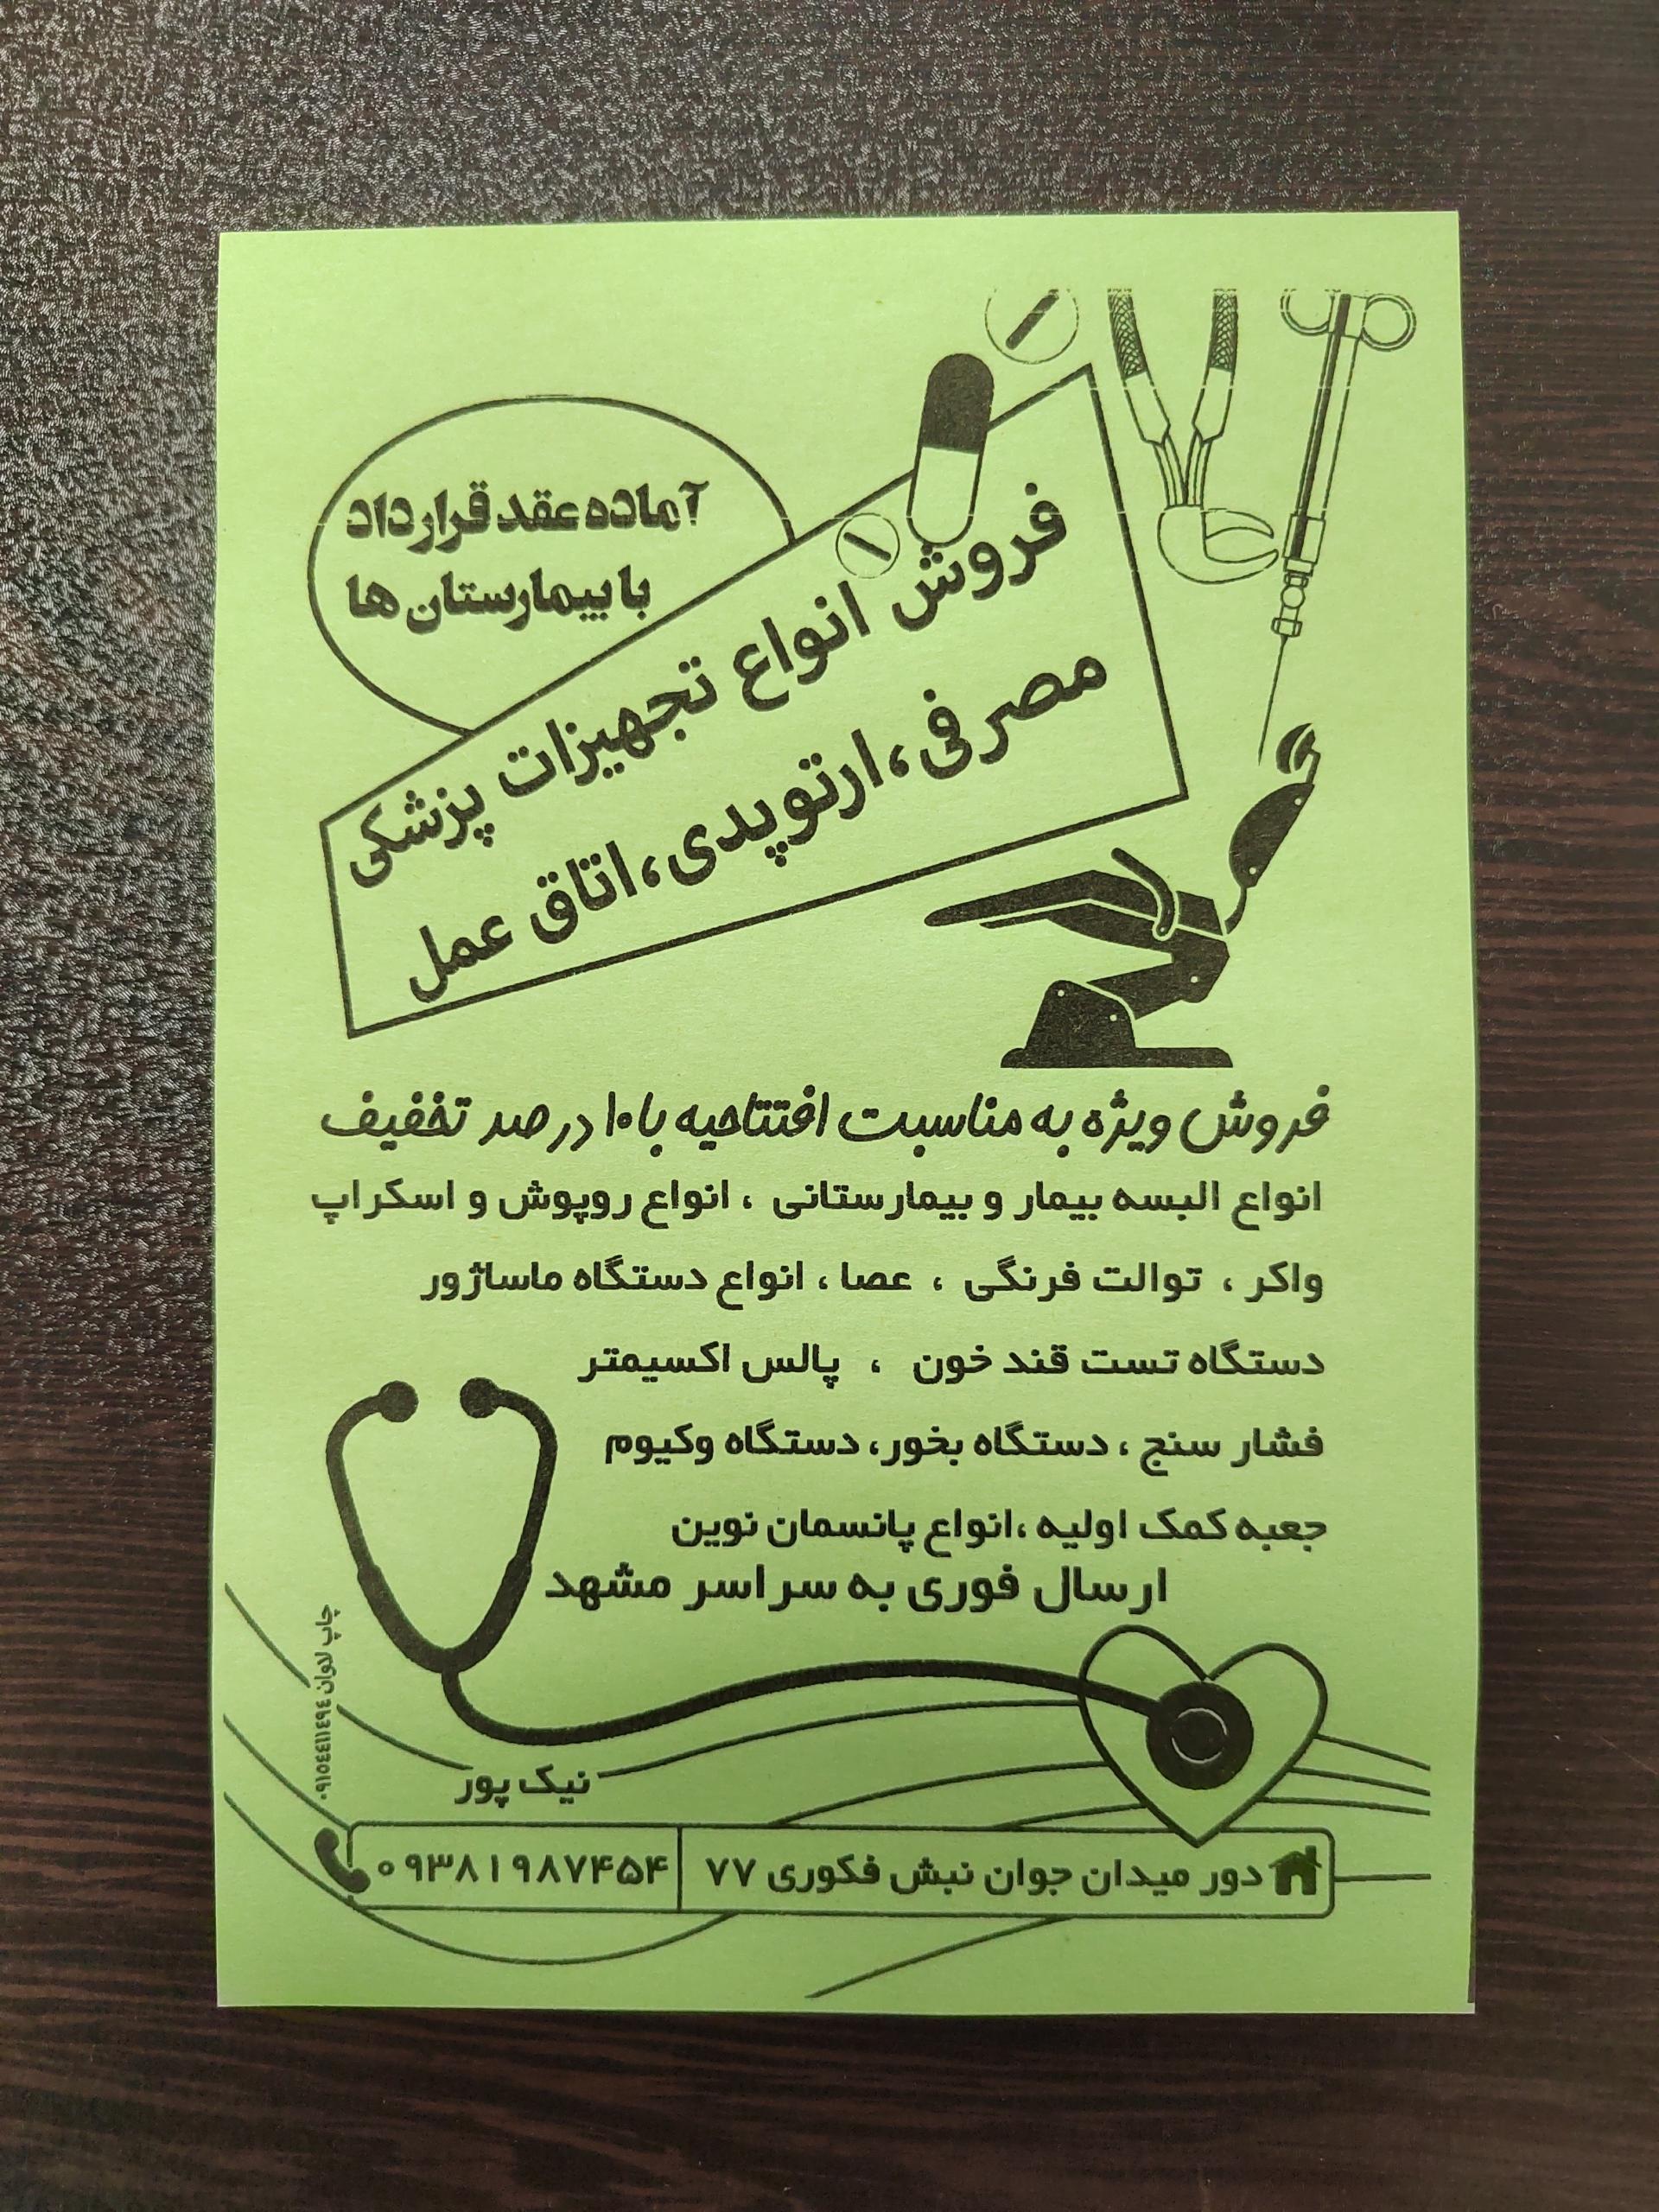 آماده عقد قرارداد
با بیمارستان ها
فروش انواع تجهیزات پزشکی
مصرفی، ارتوپدی، اتاق عمل
فروش ویژه به مناسبت افتتاحیه با ۱۰ درصد تخفیف
انواع البسه بیمار و بیمارستانی ، انواع روپوش و اسکراپ
واکر ، توالت فرنگی ، عصا ، انواع دستگاه ماساژور
دستگاه تست قند خون ، پالس اکسیمتر
فشار سنج ، دستگاه بخور، دستگاه وکیوم
جعبه کمک اولیه ،انواع پانسمان نوین
ارسال فوری به سراسر مشهد
چاپ لاوان ۰۹۱۵۴۴۱۱۴۹۴
نیک پور
دور میدان جوان نبش فکوری ۷۷
۰۹۳۸۱۹۸۷۴۵۴